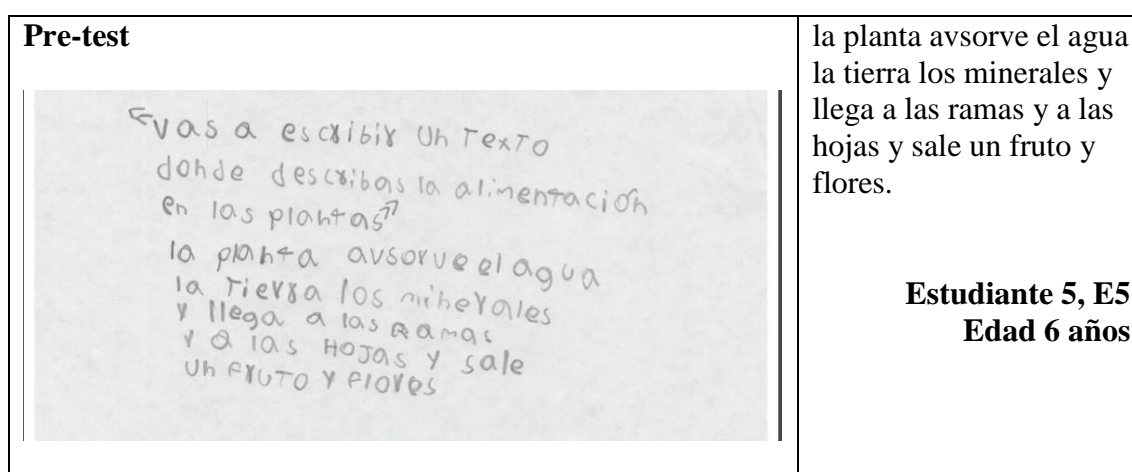 Pre-test
"vas a escribir un Texto
donde describas la alimentación
en las plantas"
la planta avsorve el agua
la Tierra los minerales
y llega a las Ramas
y a las HOJas y sale
un FRUTO Y Flores
la planta avsorve el agua
la tierra los minerales y
llega a las ramas y a las
hojas y sale un fruto y
flores.
Estudiante 5, E5
Edad 6 años